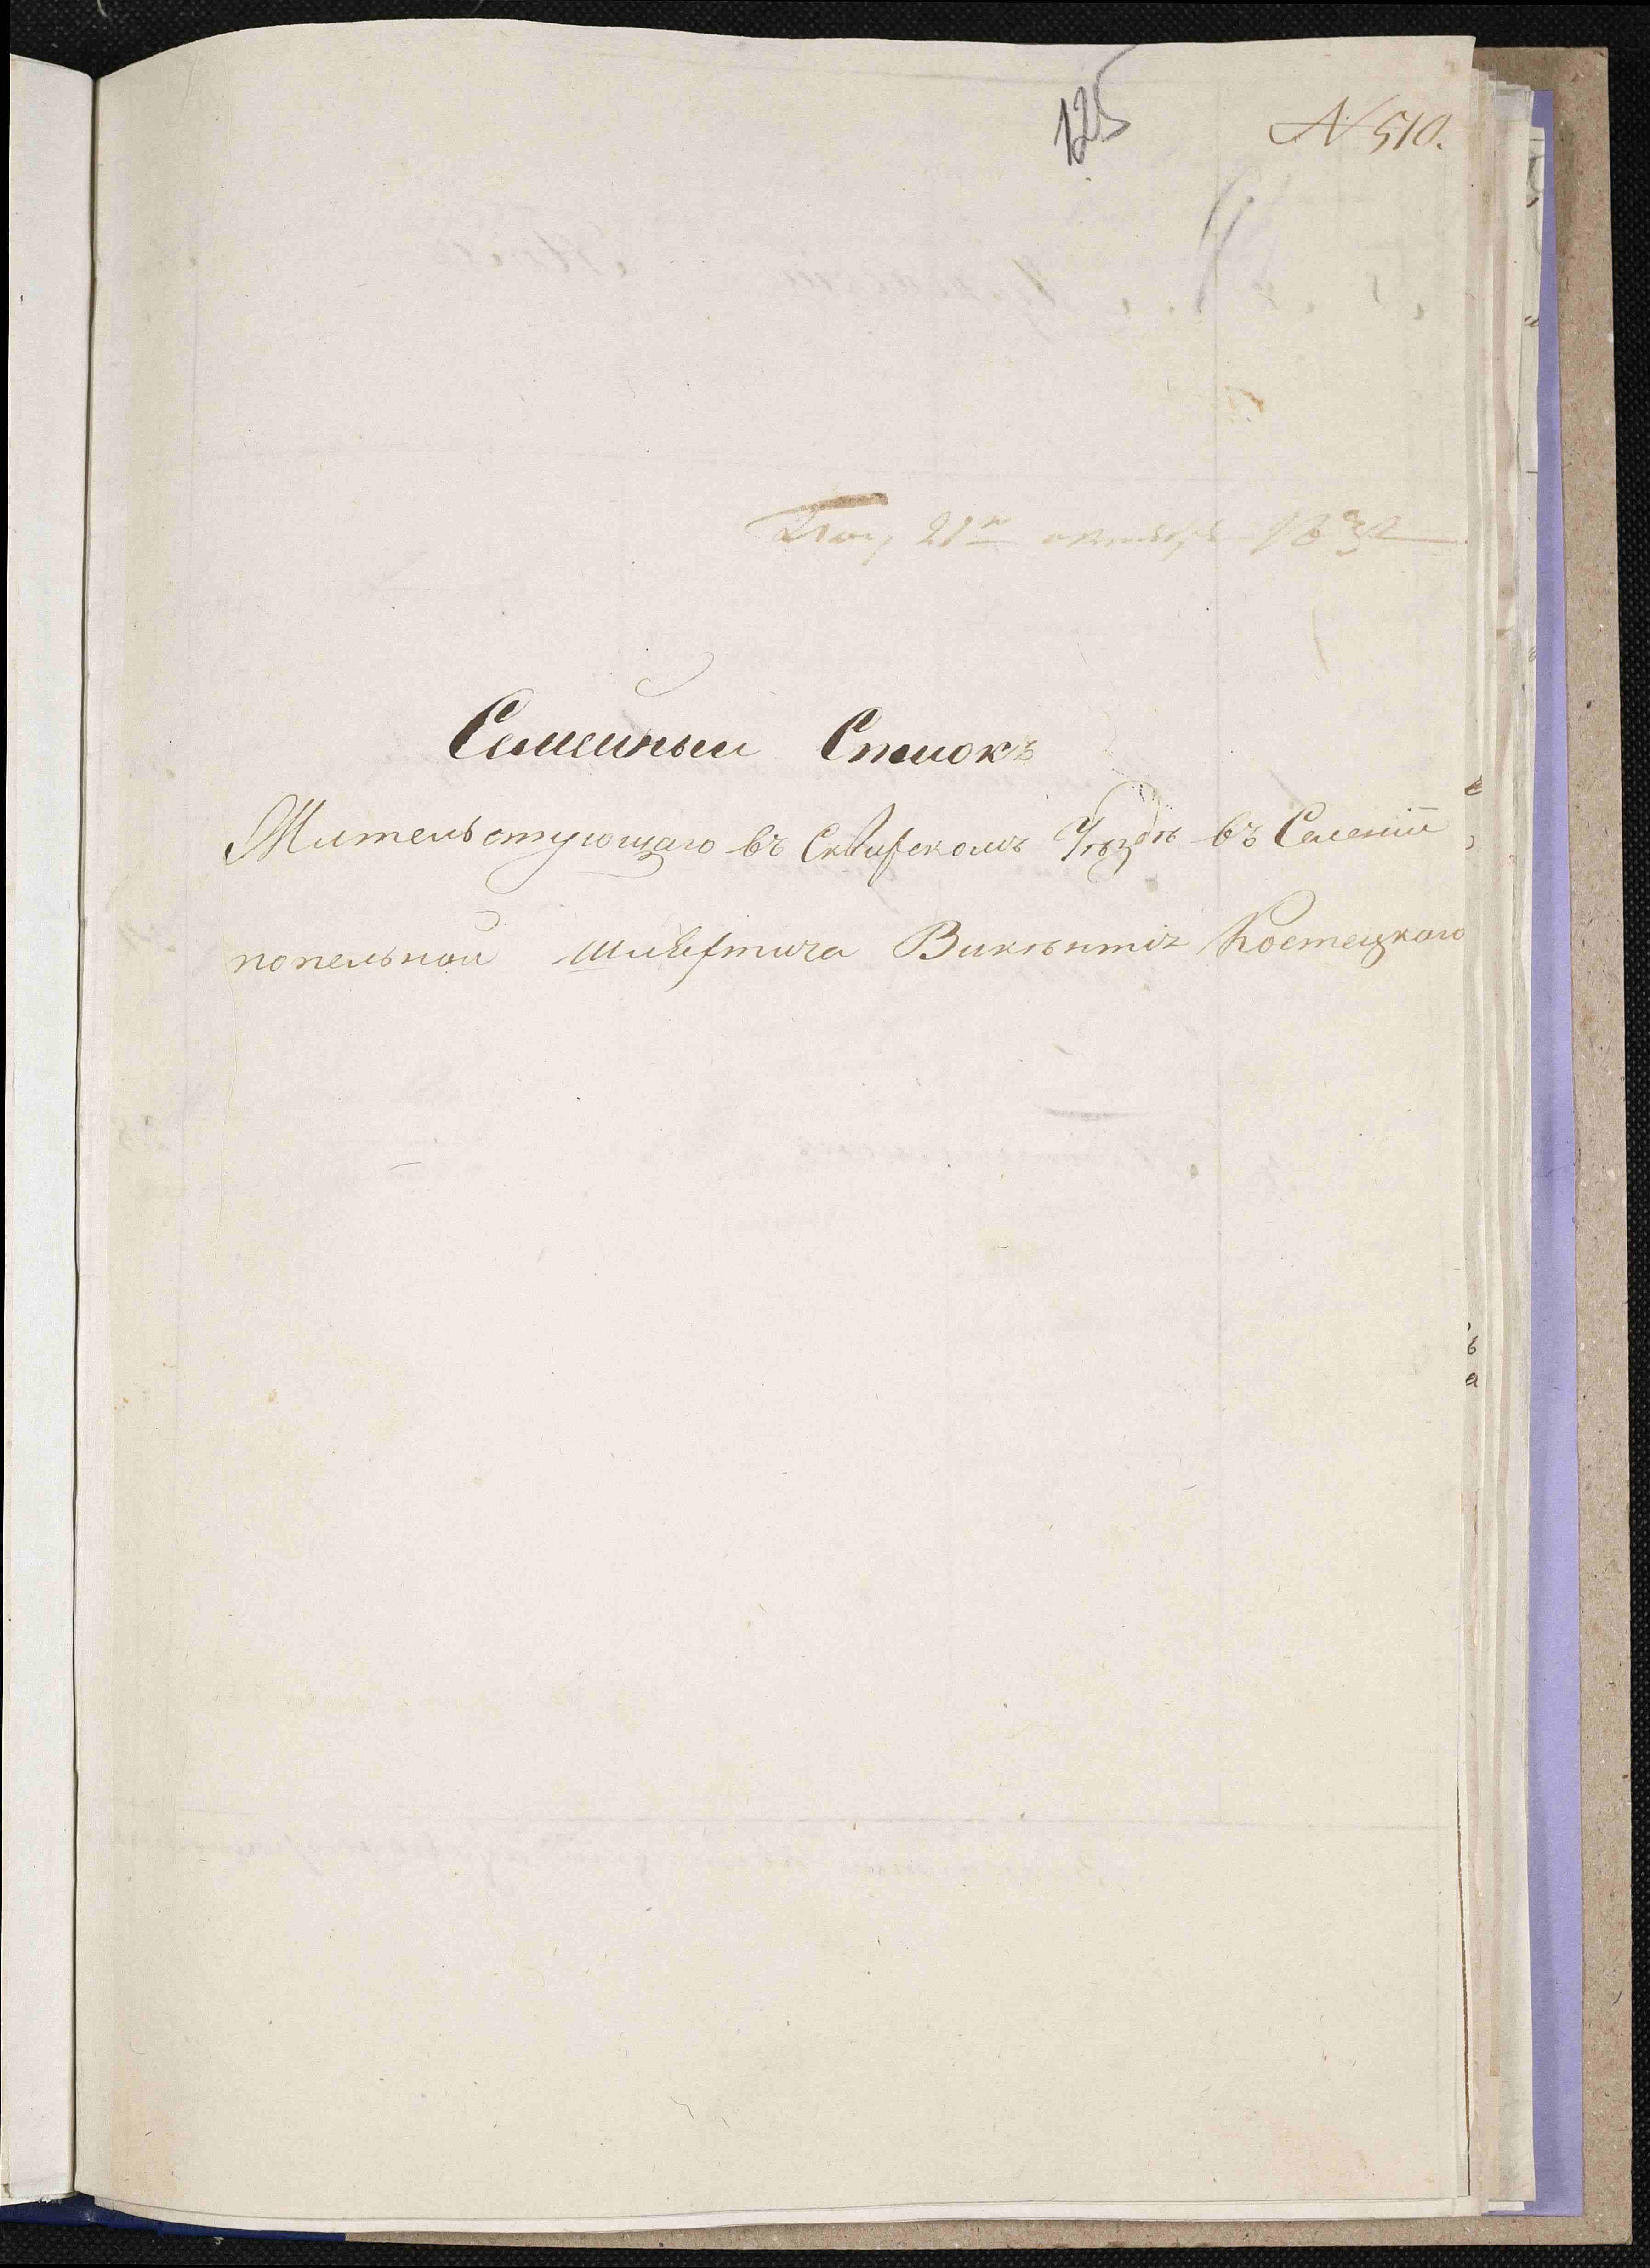 125
N 510.
21го октября
Семейный Список
Жительствующаго въ Сквирскомъ Уѣздѣ въ Селеніи
попельной Шляхтича Викентія Костецкаго